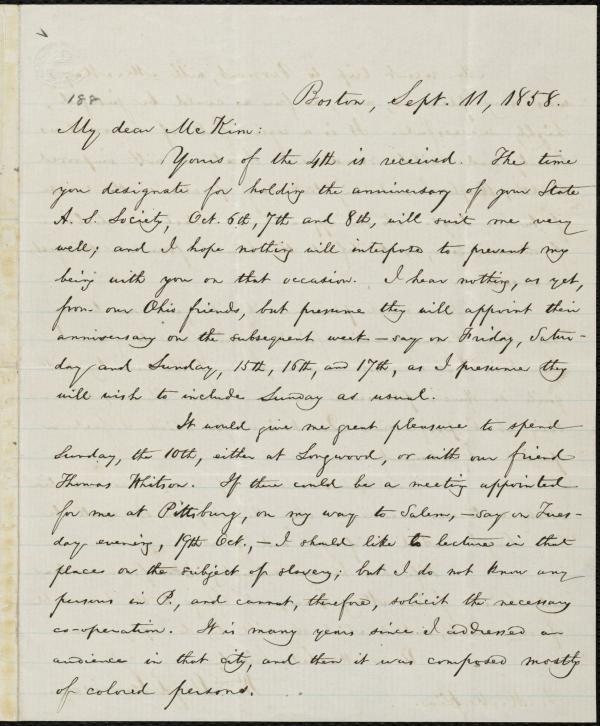 188
Boston, Sept. 11, 1858.
My dear McKim:
Yours of the 4th is received. The time
you designate for holding the anniversary of your State
A. S. Society, Oct. 6th, 7th and 8th, will suit me very
well; and I hope nothing will interpose to prevent my
being with you on that occasion. I hear nothing, as yet,
from our Ohio friends, but presume they will appoint their
anniversary on the subsequent week — say on Friday, Satur-
day and Sunday, 15th, 16th, and 17th, as I presume they
will wish to include Sunday as usual.
It would give me great pleasure to spend
Sunday, the 10th, either at Longwood, or with our friend
Thomas Whitson. If there could be a meeting appointed
for me at Pittsburg, on my way to Salem, — say on Tues-
day evening, 19th Oct., — I should like to lecture in that
place on the subject of slavery; but I do not know any
persons in P., and cannot, therefore, solicit the necessary
co-operation. It is many years since I addressed an
audience in that city, and then it was composed mostly
of colored persons.